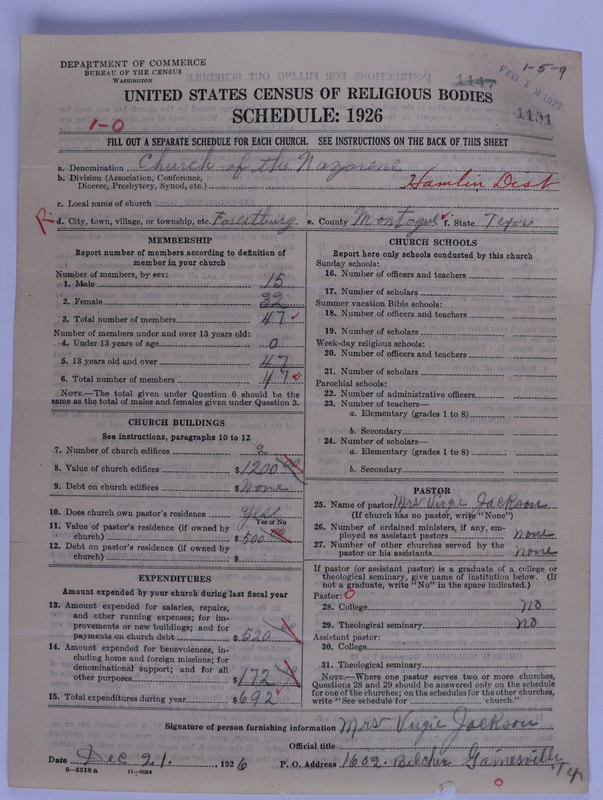 DEPARTMENT OF COMMERCE
BUREAU OF THE CENSUS
WASHINGTON
1-5-9
FEB 12 1927
1147
1151
UNITED STATES CENSUS OF RELIGIOUS BODIES
SCHEDULE: 1926
1-0
FILL OUT A SEPARATE SCHEDULE FOR EACH CHURCH. SEE INSTRUCTIONS ON THE BACK OF THIS SHEET
a. Denomination Church of the Nazarene
b. Division (Association, Conference,
Diocese, Presbytery, Synod, etc.) Hamlin Dist
c. Local name of church
R. d. City, town, village, or township, etc. Forestburg e. County Montague f. State Texas
MEMBERSHIP
Report number of members according to definition of
member in your church
Number of members, by sex:
1. Male 15
2. Female 32
3. Total number of members 47
Number of members under and over 13 years old:
4. Under 13 years of age 0
5. 13 years old and over 47
6. Total number of members 47
NOTE.—The total given under Question 6 should be the
same as the total of males and females given under Question 3.
CHURCH BUILDINGS
See instructions, paragraphs 10 to 12
7. Number of church edifices 2
8. Value of church edifices $1200 00
9. Debt on church edifices $None
10. Does church own pastor's residence? Yes
Yes or No
11. Value of pastor's residence (if owned by
church) $500 00
12. Debt on pastor's residence (if owned by
church) $
EXPENDITURES
Amount expended by your church during last fiscal year
13. Amount expended for salaries, repairs,
and other running expenses; for im-
provements or new buildings; and for
payments on church debt $520
14. Amount expended for benevolences, in-
cluding home and foreign missions; for
denominational support; and for all
other purposes $172
15. Total expenditures during year $692
CHURCH SCHOOLS
Report here only schools conducted by this church
Sunday schools:
16. Number of officers and teachers
17. Number of scholars
Summer vacation Bible schools:
18. Number of officers and teachers
19. Number of scholars
Week-day religious schools:
20. Number of officers and teachers
21. Number of scholars
Parochial schools:
22. Number of administrative officers
23. Number of teachers—
a. Elementary (grades 1 to 8)
b. Secondary
24. Number of scholars—
a. Elementary (grades 1 to 8)
b. Secondary
PASTOR
25. Name of pastor Mrs Virgie Jackson
(If church has no pastor, write "None")
26. Number of ordained ministers, if any, em-
ployed as assistant pastors none
27. Number of other churches served by the
pastor or his assistants none
If pastor (or assistant pastor) is a graduate of a college or
theological seminary, give name of institution below. (If
not a graduate, write "No" in the space indicated.)
Pastor: 0
28. College no
29. Theological seminary no
Assistant pastor:
30. College
31. Theological seminary
NOTE.—Where one pastor serves two or more churches,
Questions 28 and 29 should be answered only on the schedule
for one of the churches; on the schedules for the other churches,
write "See schedule for church."
Signature of person furnishing information Mrs Virgie Jackson
Official title
Date Dec 21, 1926 P. O. Address 1602 Belcher Gainesville, Tex
8—5318a 11—9054
0